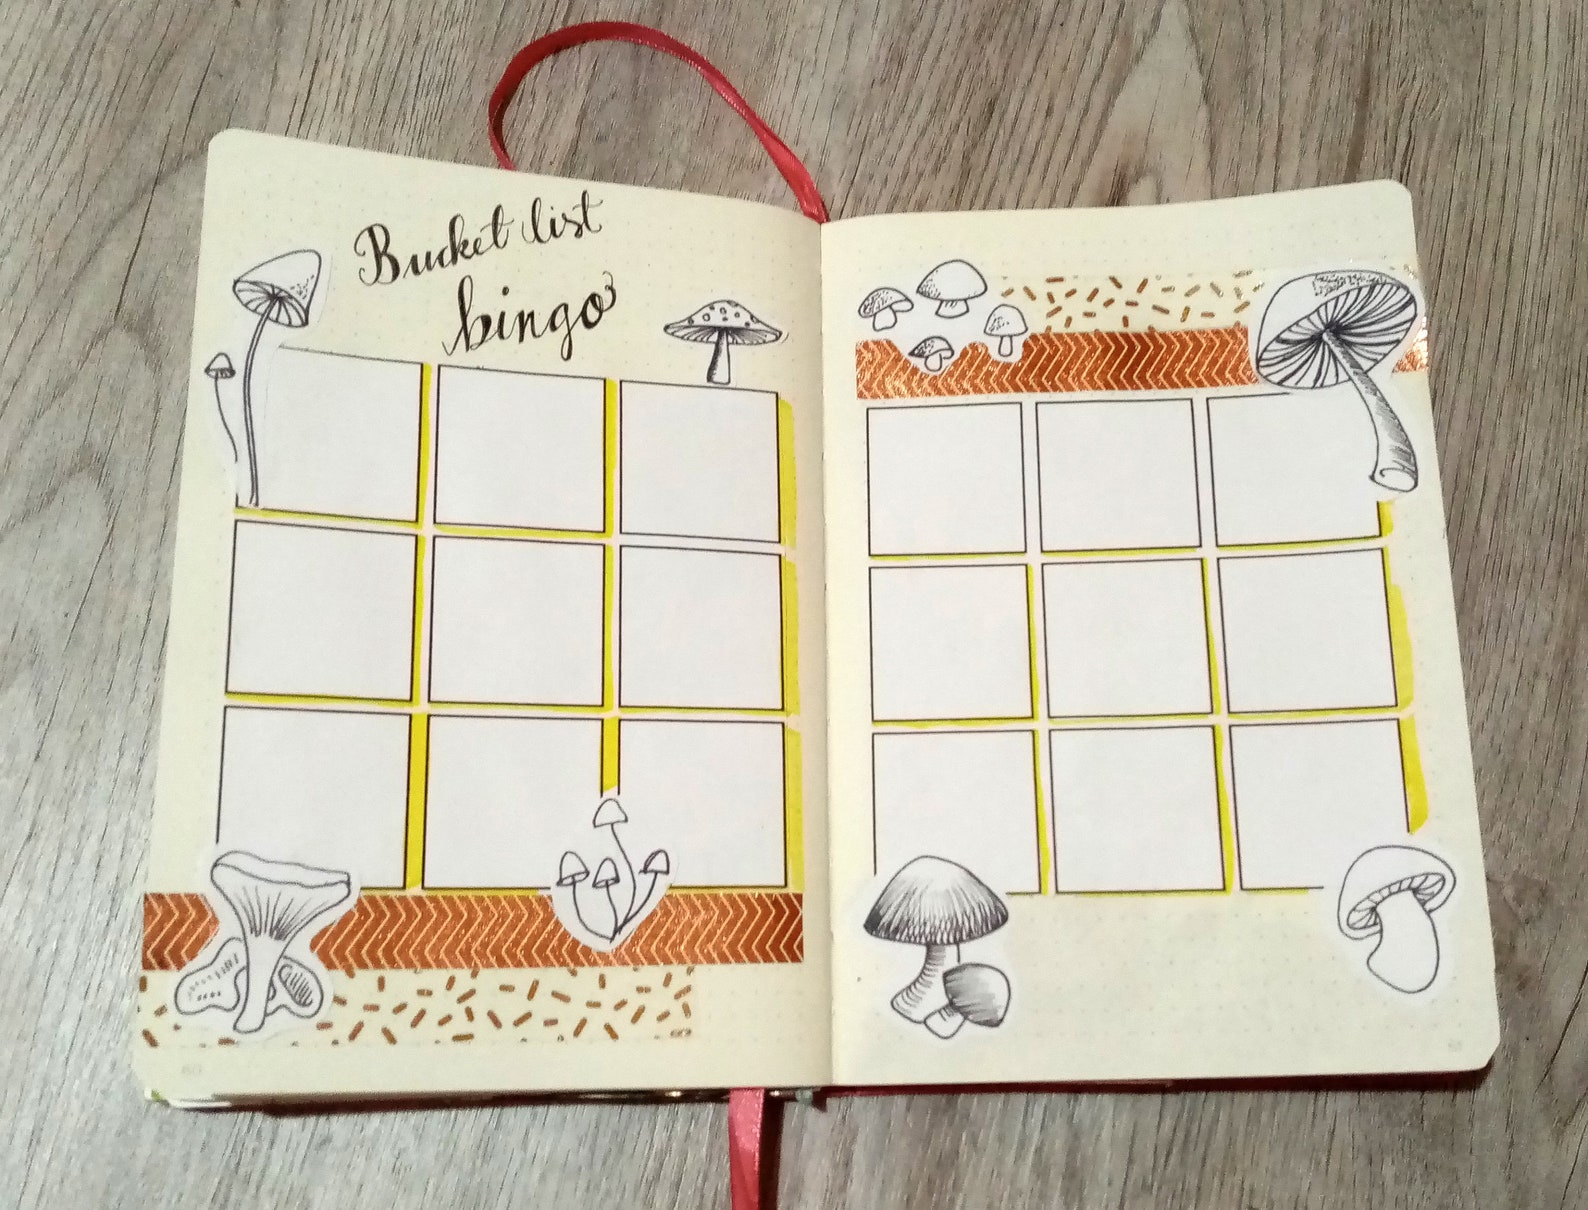 Bucket list
bingo